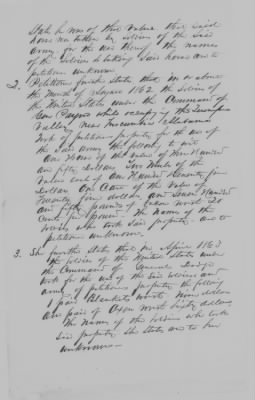 State he was of that value that said
horse was taken by soldiers of the said
army for the use thereof. The names
of the Soldiers so taking said horse are to
petitioner unknown.
2. Petitioner further states that in or about
the month of 1862 the Soldiers of
the United States under the Command of
while occupying the Tennessee
Valley near Tuscumbia Alabama
took of petitioners property for the use of
the said army the following to wit
One Horse of the value of One Hundred
and fifty dollars. Two Mules of the
value each of One Hundred & twenty five
dollars. One Cow of the value of
Twenty four dollars and Seven Hundred
and fifty pounds of bacon worth 20
Cents per pound. The Names of the
who took said property are to
petitioner unknown.
3. She further States that in April 1863
the Soldiers of the United States under
the Command of General Dodge
took for the use of the said soldiers and
army of petitioners property the following
1 pair Blankets worth Nine dollars
One pair of Oxen worth Sixty dollars
The Names of the soldiers who took
said property she States are to her
unknown